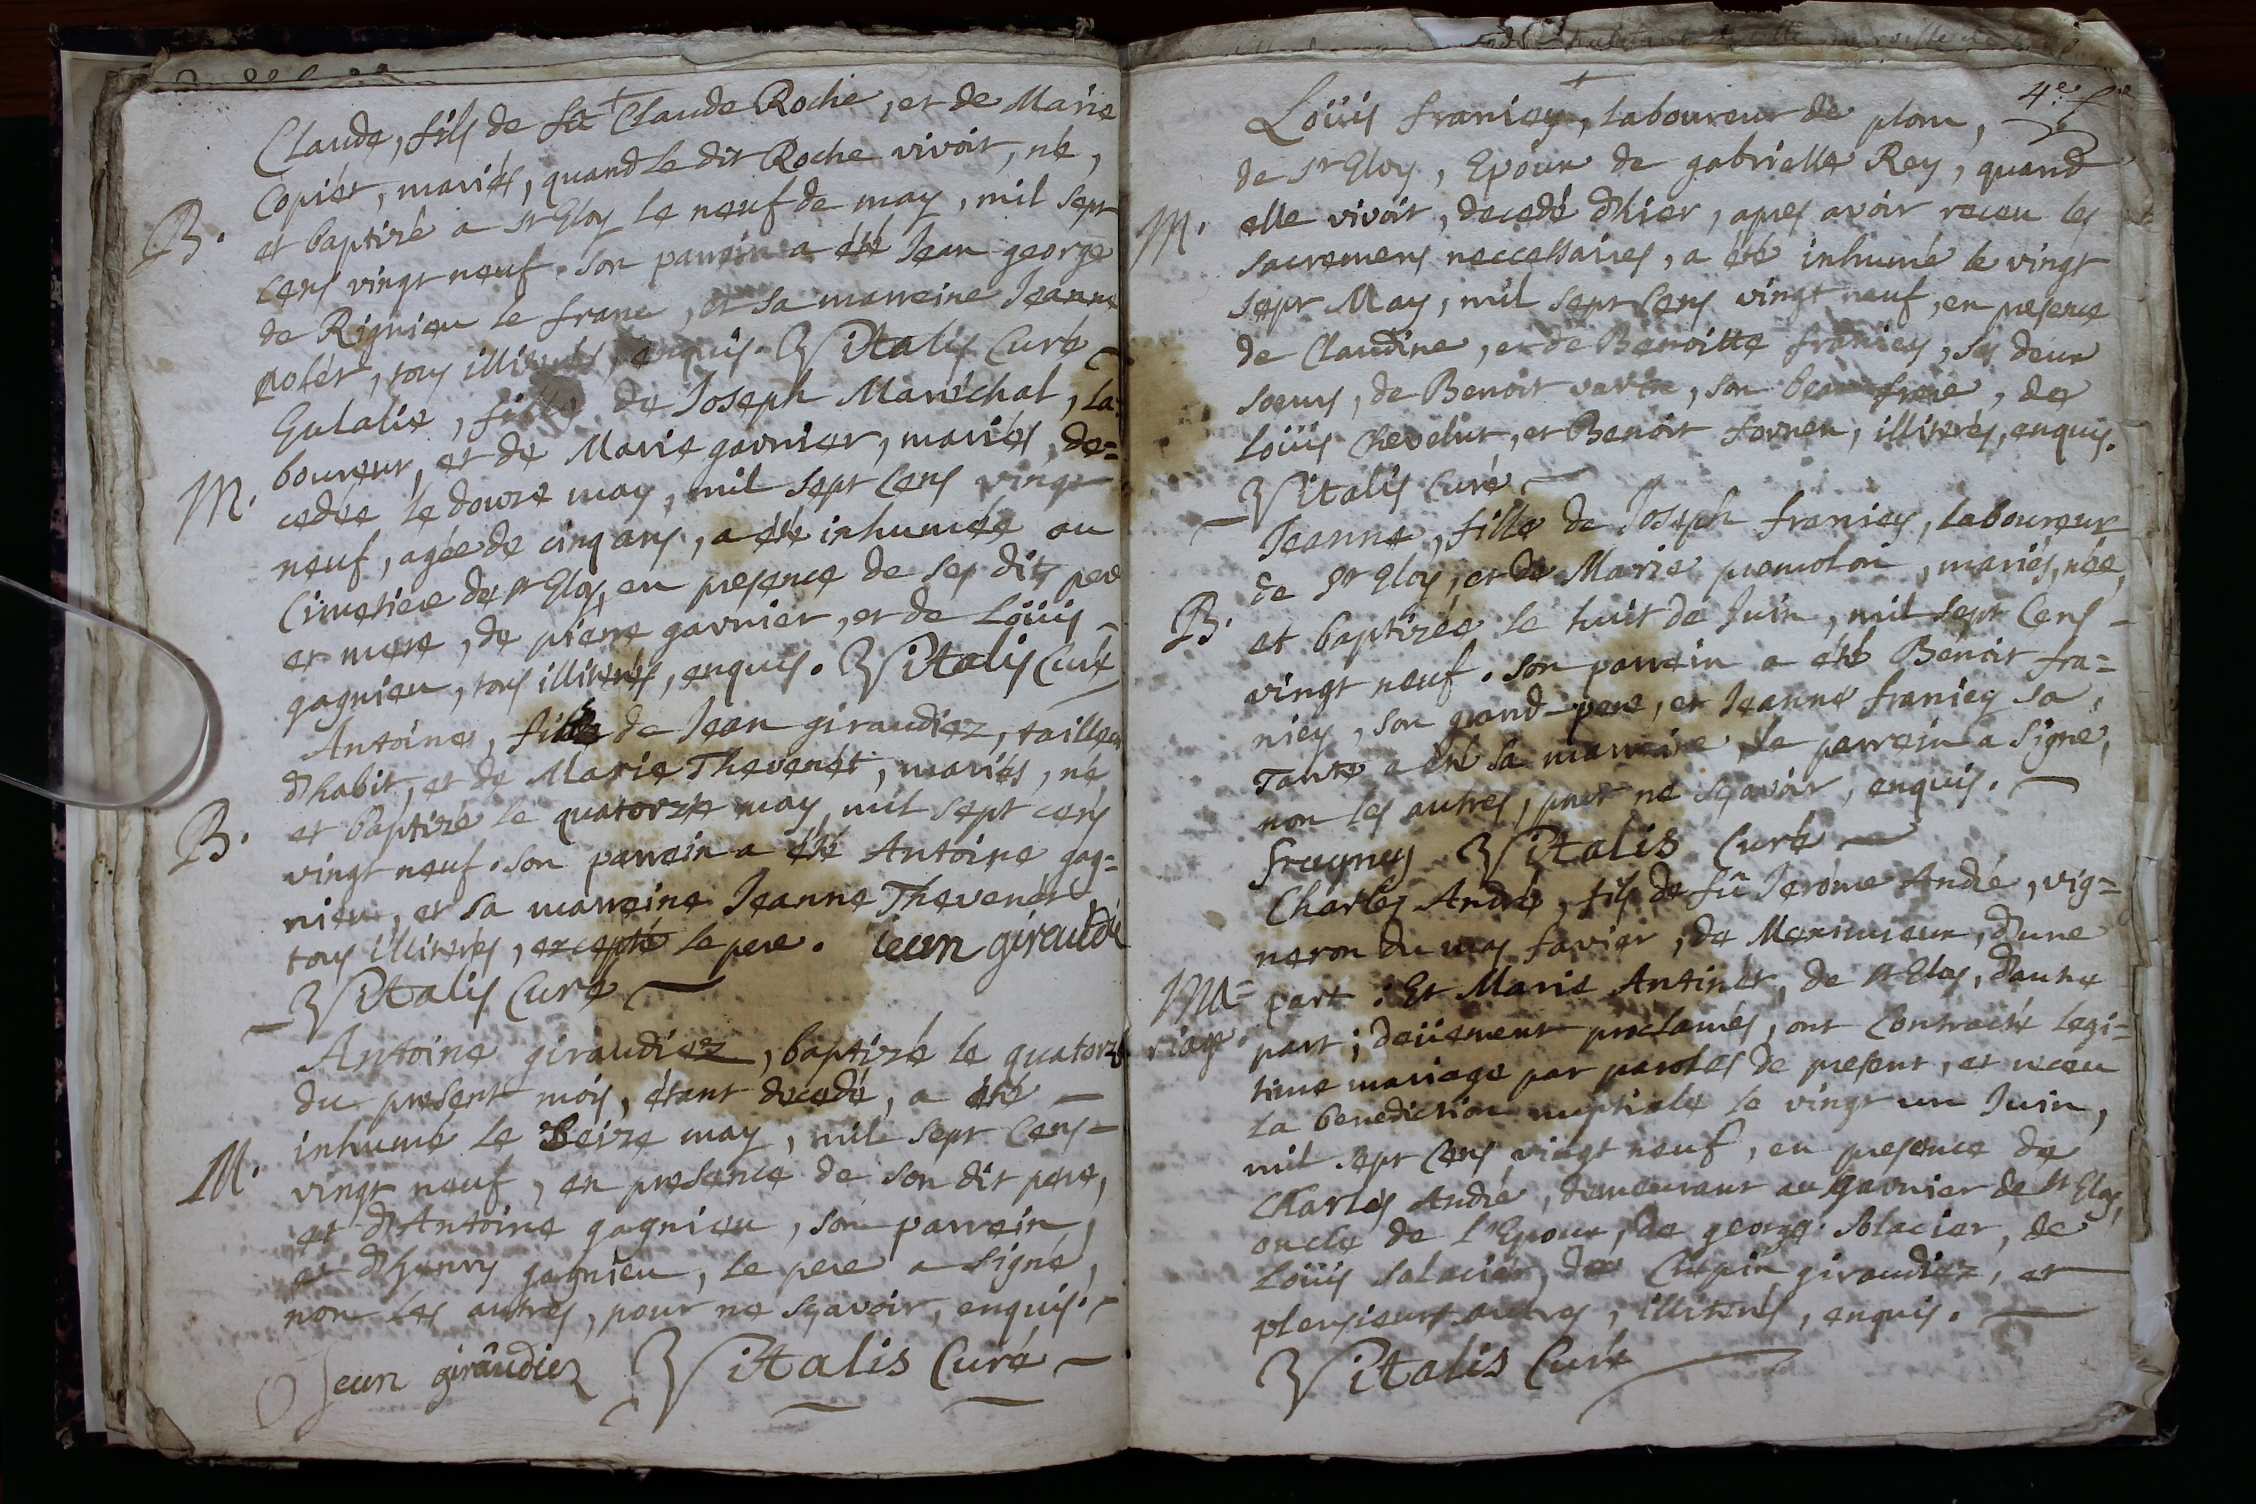 Claude, fils de fû Claude Roche, et de Marie
Copiér, mariés, quand le dit Roche vivoit, né,
B. et baptizé a st Eloy le neuf de may, mil sept
cens vingt neuf. Son parrein a été Jean george
de Rignieu le franc, et sa marreine Jeanne
tous illiterés, enquis. Vitalis Curé
Eulalie, fille de Joseph Maréchal, la=
boureur, et de Marie garnier, mariés, de=
M. cedée le douze may, mil sept cens vingt
neuf, agée de cinq ans, a été inhumée au
Cimetiere de st Eloy, en presence de ses dits pere
et mere, de pierre garnier, et de Loüis
gagnieu, tous illiterés, enquis. Vitalis Curé
Antoine, fils de Jean giraudiez, tailleur
d'habit, et de Marie Thevenét, mariés, né
B. et baptizé le quatorze may, mil sept cens
vingt neuf. son parrein a été Antoine gag=
nieu, et sa marreine Jeanne Thevenét,
tous illiterés, excepté le pere. iean giraudié
Vitalis Curé
Antoine giraudiez, baptizé le quatorze
du present mois, étant decedé, a été
inhumé le Seize may, mil sept cens
M. vingt neuf, en presence de son dit pere,
et d'Antoine gagnieu, son parrein,
et d'henry gagnieu, le pere a signé,
non les autres, pour ne sçavoir, enquis.
Jean giraudiez Vitalis Curé
4e. fe
Loüis franiey, laboureur de plom,
de st Eloy, Epoux de gabrielle Rey, quand
M. elle vivoit, decedé d'hier, apres avoir receu les
sacremens neccessaires, a été inhumé le vingt
sept May, mil sept Cens vingt neuf, en presence
de Claudine, et de Benoitte franiey, ses deux
soeurs, de Benoit varin, son beau frere, de
Loüis Chevelut, et Benoit fornen, illiterés, enquis.
Vitalis Curé
Jeanne, fille de Joseph franiey, laboureur
de St Eloy, et de Marie promolon, mariés, née,
B. et baptizée le huit de Juin, mil sept Cens
vingt neuf. son parrein a été Benoit fra=
niey, son grand-pere, et Jeanne franiey sa
Tante a été sa marreine, le parrein a signé,
non les autres, pour ne sçavoir, enquis.
fragney Vitalis Curé
Charles André, fils de fû Jerome André, vig=
neron du mas favier, de Meximieux, d'une
Ma= part : Et Marie Antinét, de st Eloy, d'autre
riage part ; deüement proclamés, ont Contracté legi=
time mariage par paroles de present, et receu
la benediction nuptiale le vingt un Juin,
mil sept Cens vingt neuf, en presence de
Charles André, demeurant au garnier de st Eloy,
oncle de l'Epoux, de george Solacier, de
Loüis Salacier, de Crepin giraudiez, et
plersieurs autres, illiterés, enquis.
Vitalis Curé